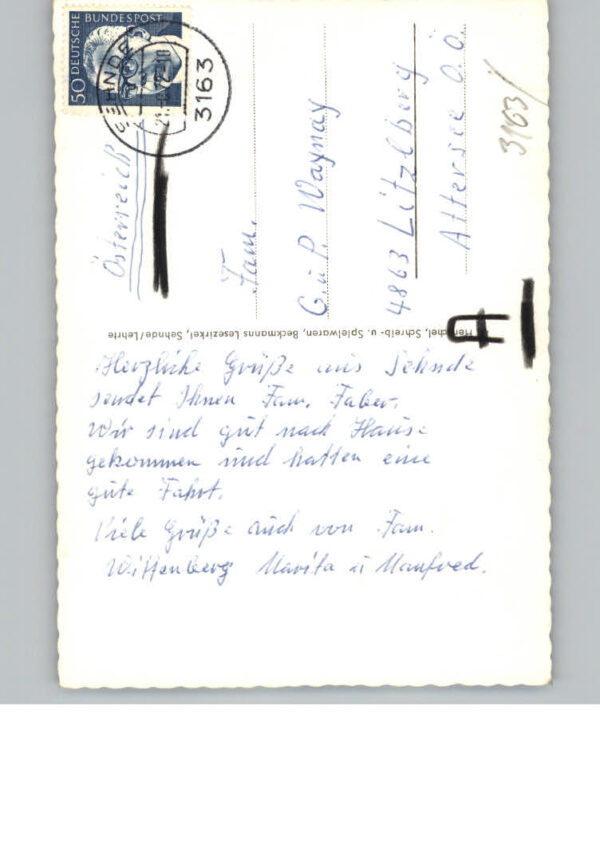 50 DEUTSCHE BUNDESPOST
SEHNDE
3163
Österreich
Fam.
G. u P. Waynay
4863 Litzlberg
Attersee O. Ö.
3163/
Schreib- u. Spielwaren, Beckmanns Lesezirkel, Sehnde/Lehrte
Herzliche Grüße aus Sehnde
sendet Ihnen Fam. Faber.
Wir sind gut nach Hause
gekommen und hatten eine
gute Fahrt.
Viele Grüße auch von Fam.
Wittenberg Marita u Manfred.